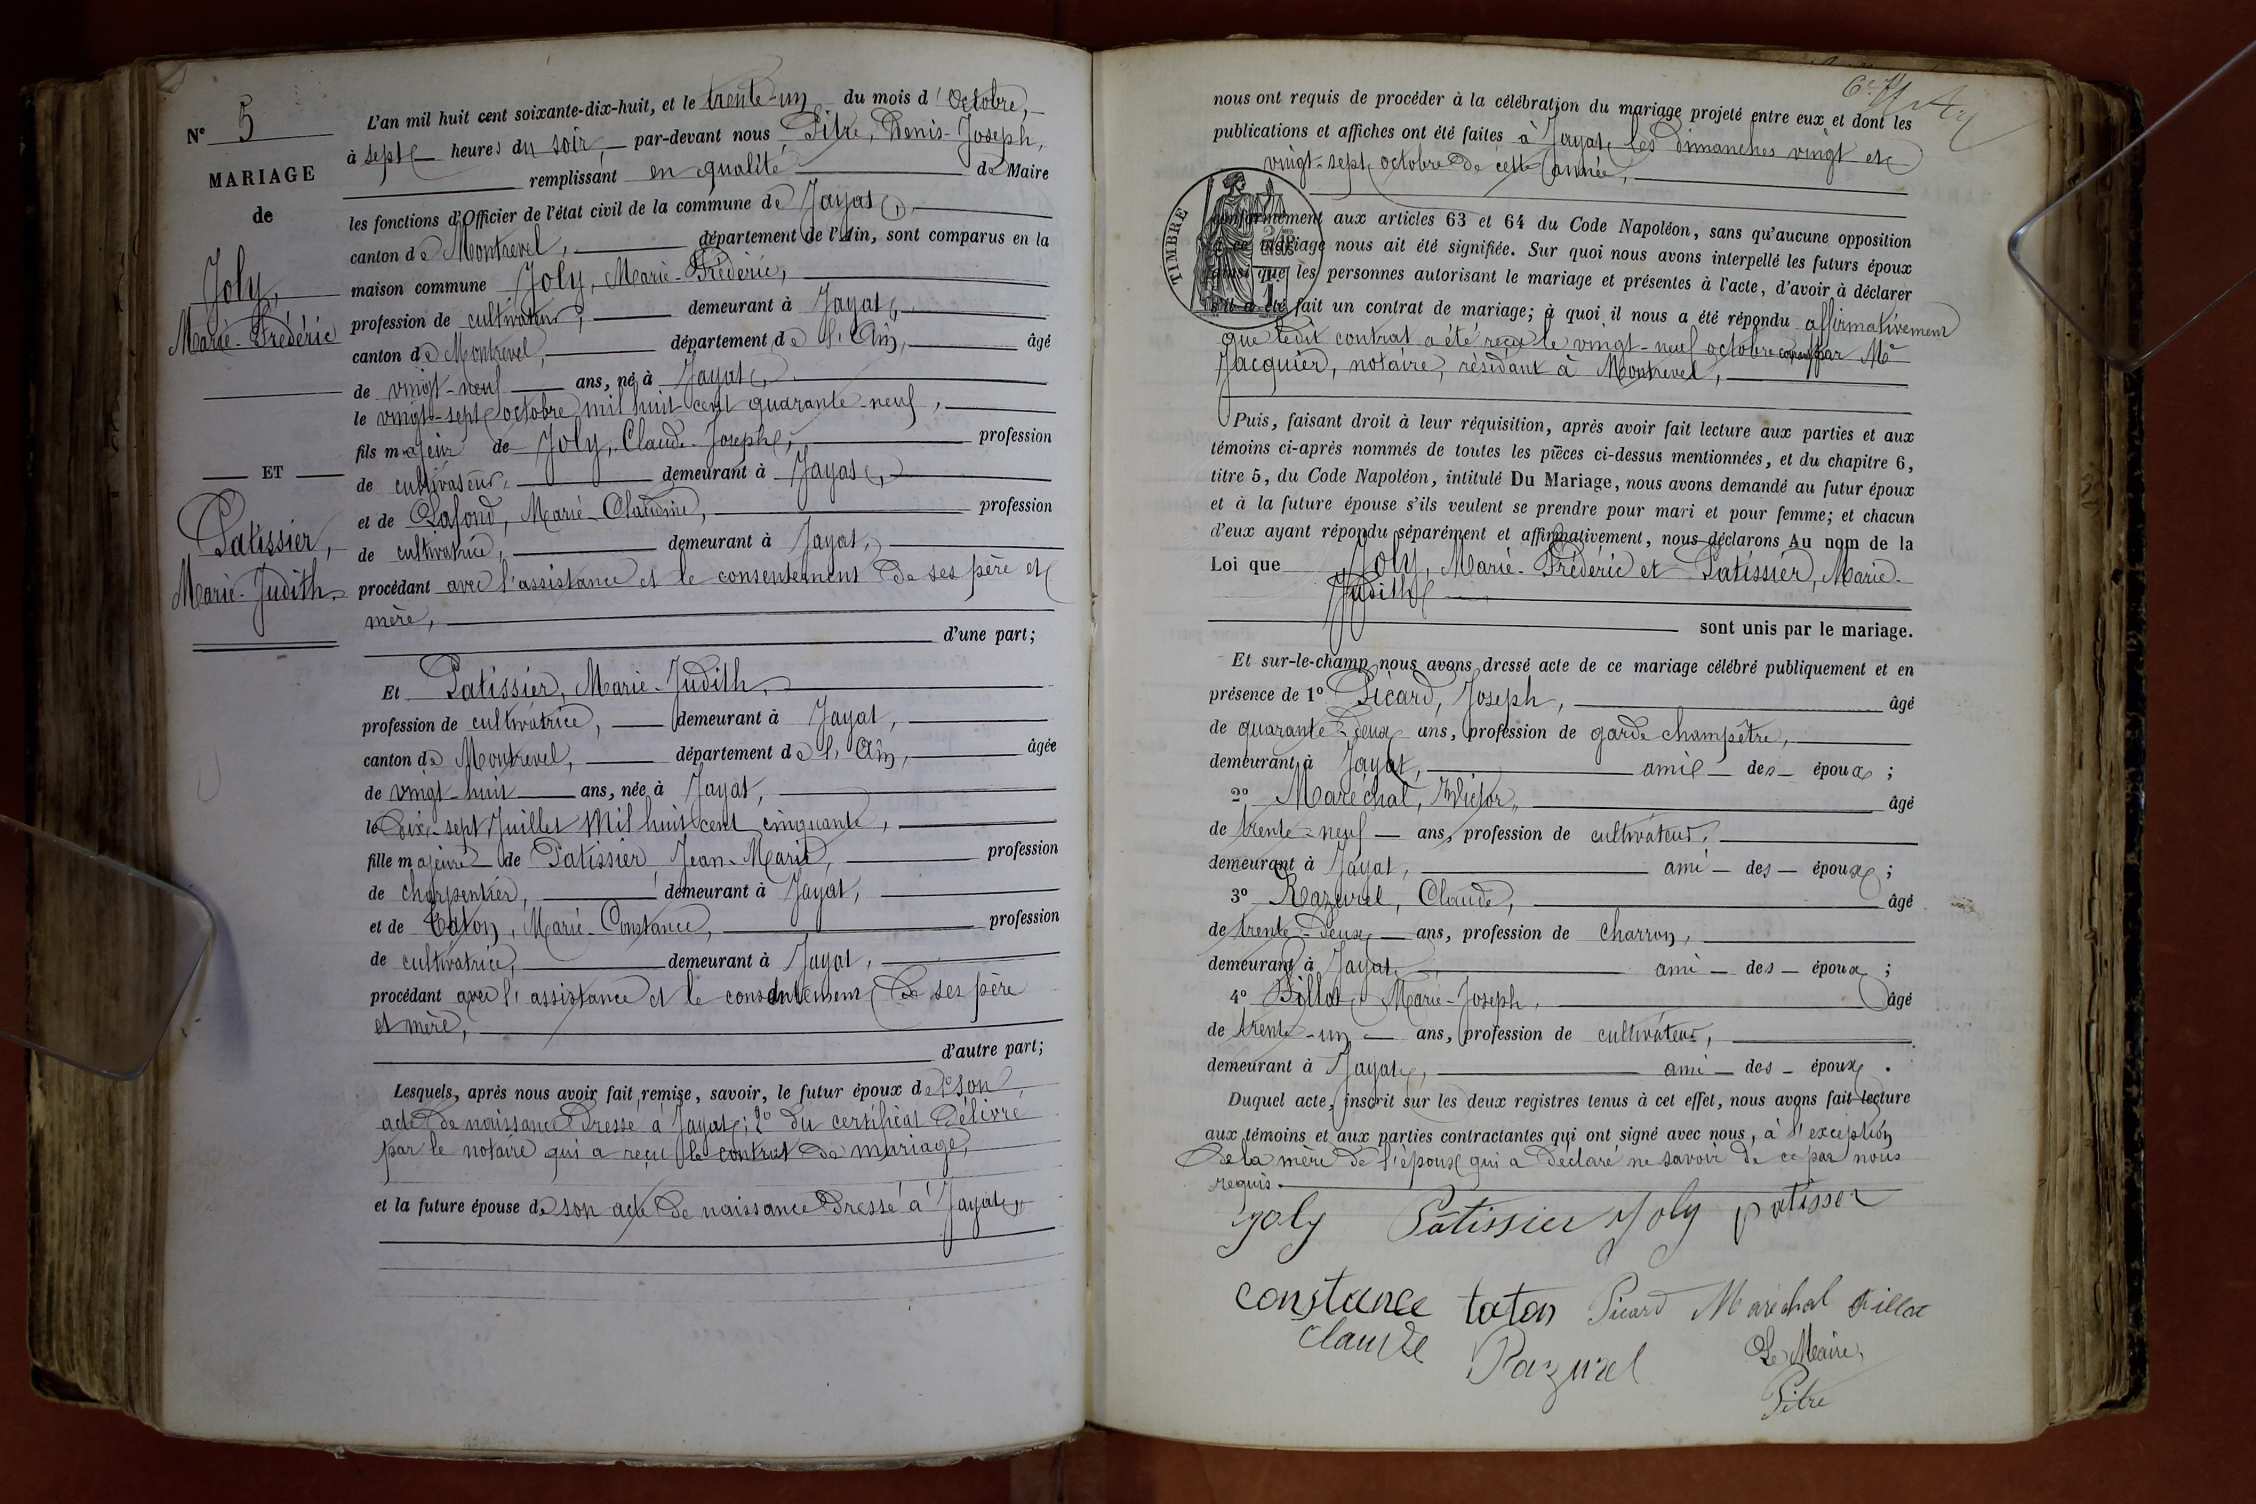 N° 5
MARIAGE
de
Joly,
Marie-Frédéric
ET
Patissier,
Marie-Judith.
L'an mil huit cent soixante-dix-huit, et le trente-un du mois d'Octobre,
à sept heures du soir, par-devant nous Pitre, Denis-Joseph,
remplissant en qualité de Maire
les fonctions d'Officier de l'état civil de la commune de Jayat (1),
canton de Montrevel, département de l'Ain, sont comparus en la
maison commune Joly, Marie-Frédéric,
profession de cultivateur, demeurant à Jayat,
canton de Montrevel, département de l'Ain, âgé
de vingt-neuf ans, né à Jayat,
le vingt-sept octobre mil huit cent quarante-neuf,
fils majeur de Joly, Claude-Joseph, profession
de cultivateur, demeurant à Jayat,
et de Lafond, Marie-Claudine, profession
de cultivatrice, demeurant à Jayat,
procédant avec l'assistance et le consentement de ses père et
mère,
d'une part;
Et Patissier, Marie-Judith,
profession de cultivatrice, demeurant à Jayat,
canton de Montrevel, département de l'Ain, âgée
de vingt-huit ans, née à Jayat,
le dix-sept Juillet mil huit cent cinquante,
fille majeure de Patissier, Jean-Marie, profession
de charpentier, demeurant à Jayat,
et de Taton, Marie-Constance, profession
de cultivatrice, demeurant à Jayat,
procédant avec l'assistance et le consentement de ses père
et mère,
d'autre part;
Lesquels, après nous avoir fait remise, savoir, le futur époux de 1° son
acte de naissance dressé à Jayat; 2° du certificat délivré
par le notaire qui a reçu le contrat de mariage,
et la future épouse de son acte de naissance dressé à Jayat,
nous ont requis de procéder à la célébration du mariage projeté entre eux et dont les
publications et affiches ont été faites à Jayat les dimanches vingt et
vingt-sept octobre de cette année,
TIMBRE
conformément aux articles 63 et 64 du Code Napoléon, sans qu'aucune opposition
à ce mariage nous ait été signifiée. Sur quoi nous avons interpellé les futurs époux
ainsi que les personnes autorisant le mariage et présentes à l'acte, d'avoir à déclarer
s'il a été fait un contrat de mariage; à quoi il nous a été répondu affirmativement
que ledit contrat a été reçu le vingt-neuf octobre courant par Me
Jacquier, notaire, résidant à Montrevel,
Puis, faisant droit à leur réquisition, après avoir fait lecture aux parties et aux
témoins ci-après nommés de toutes les pièces ci-dessus mentionnées, et du chapitre 6,
titre 5, du Code Napoléon, intitulé Du Mariage, nous avons demandé au futur époux
et à la future épouse s'ils veulent se prendre pour mari et pour femme; et chacun
d'eux ayant répondu séparément et affirmativement, nous déclarons Au nom de la
Loi que Joly, Marie-Frédéric et Patissier, Marie-
Judith
sont unis par le mariage.
Et sur-le-champ nous avons dressé acte de ce mariage célébré publiquement et en
présence de 1° Picard, Joseph, âgé
de quarante-deux ans, profession de garde champêtre,
demeurant à Jayat, ami des époux;
2° Maréchal, Victor, âgé
de trente-neuf ans, profession de cultivateur,
demeurant à Jayat, ami des époux;
3° Razurel, Claude, âgé
de trente-deux ans, profession de charron,
demeurant à Jayat, ami des époux;
4° Billat, Marie-Joseph, âgé
de trente-un ans, profession de cultivateur,
demeurant à Jayat, ami des époux.
Duquel acte, inscrit sur les deux registres tenus à cet effet, nous avons fait lecture
aux témoins et aux parties contractantes qui ont signé avec nous, à l'exception
de la mère de l'époux qui a déclaré ne savoir de ce par nous
requis.
joly Patissier Joly patisser
constance taton Picard Maréchal Billat
claude Razurel
Le Maire,
Pitre